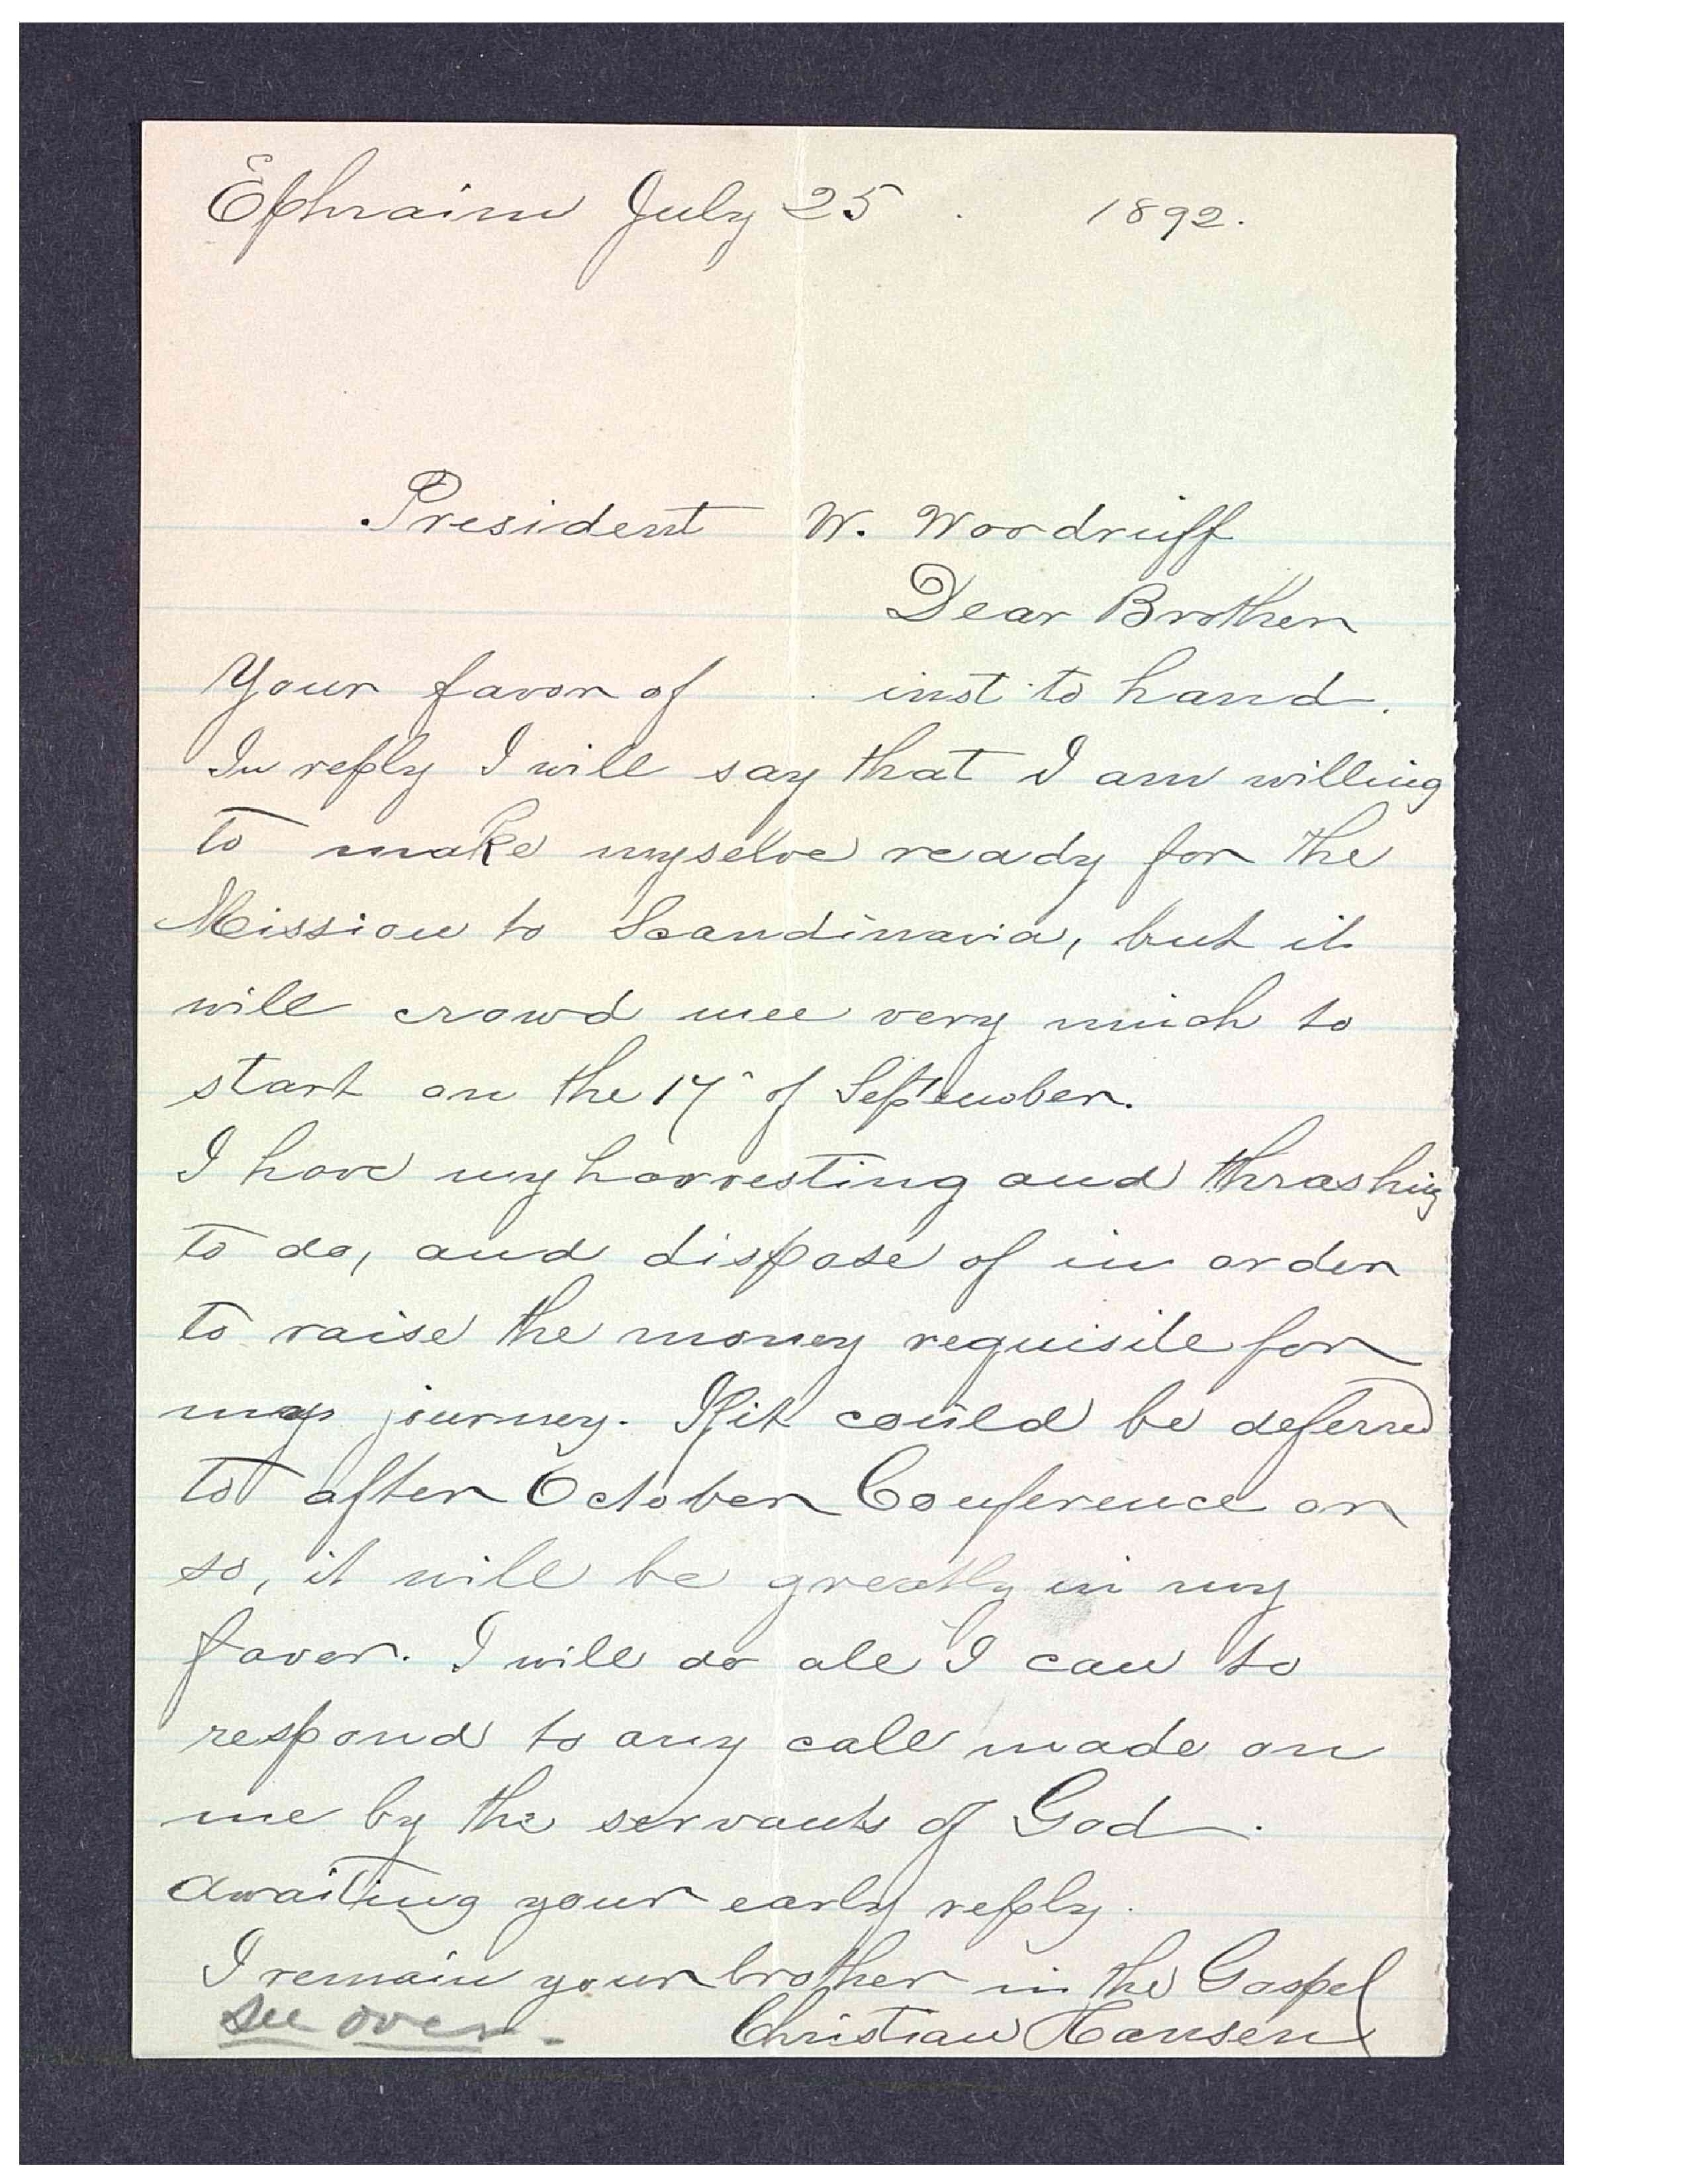 Ephraim July 25 . 1892.
President W. Woodruff
Dear Brother
Your favor of inst to hand.
In reply I will say that I am willing
to make myselve ready for the
Mission to Scandinavia, but it
will crowd mee very much to
start on the 17 of September.
I have my harvesting and thrashing
to do, and dispose of in order
to raise the money requisite for
my journey. If it could be deferred
to after October Conference or
so, it will be greatly in my
favor. I will do all I can to
respond to any call made on
me by the servants of God.
Awaiting your early reply.
I remain your brother in the Gospel
see over. Christian Hansen